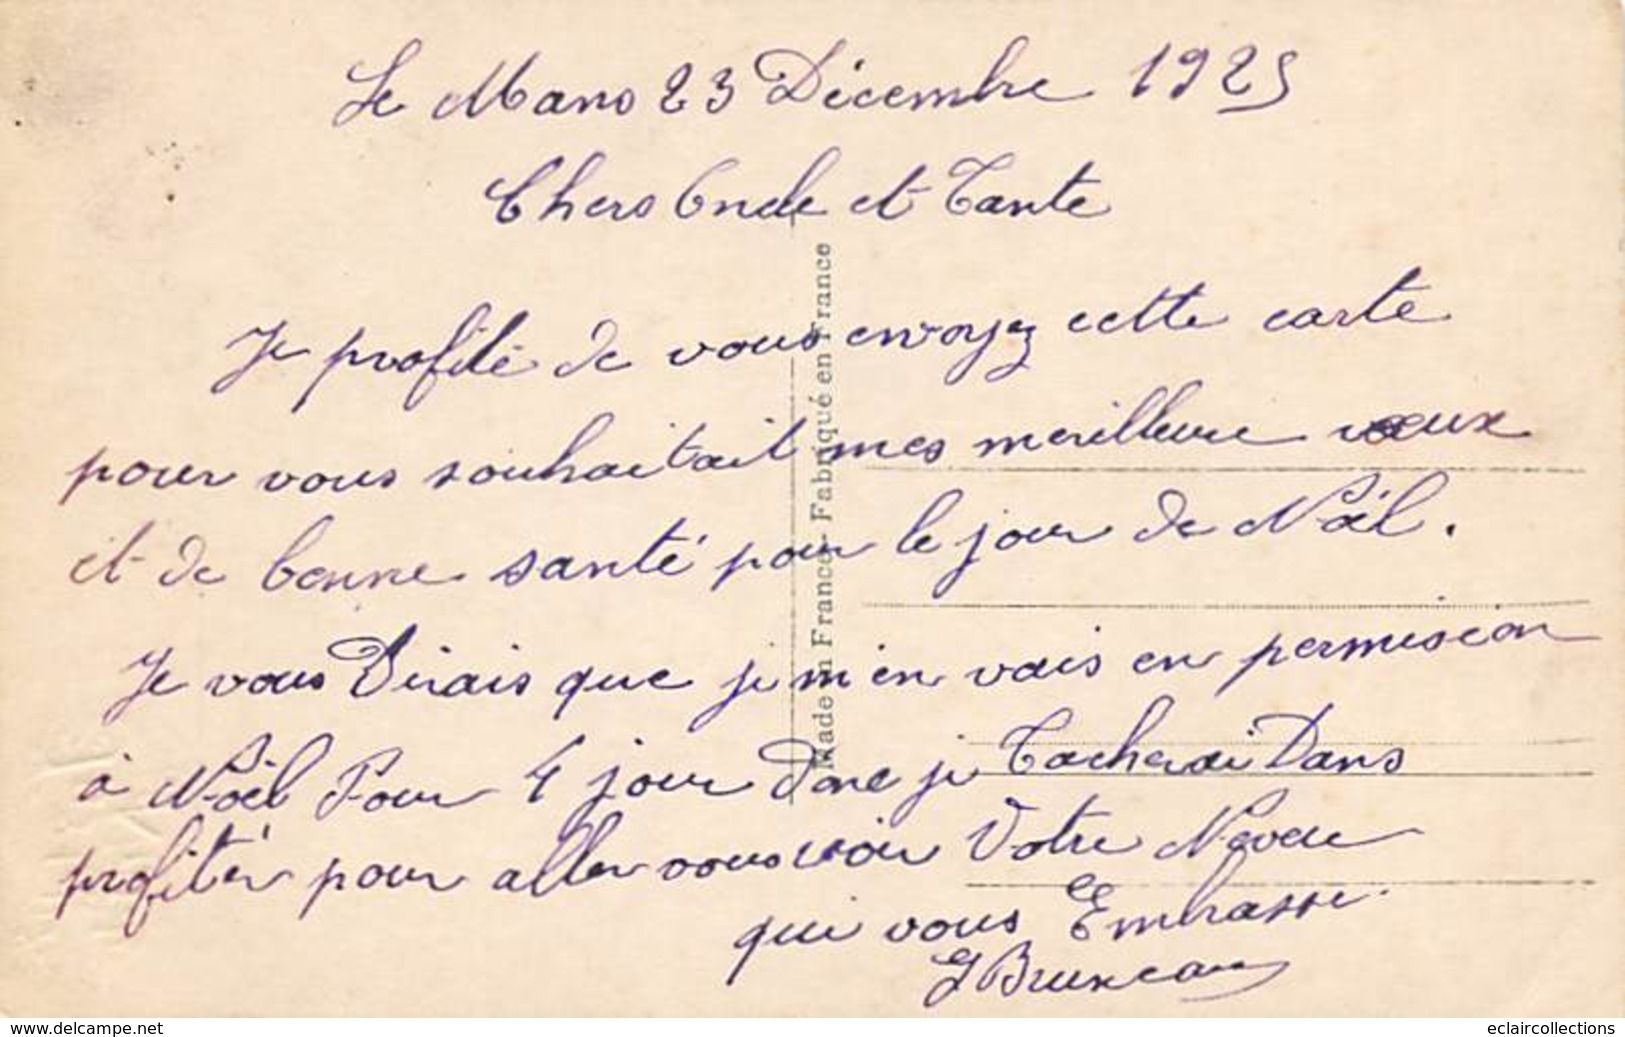 Le Mans 23 Décembre 1925
Chers Oncle et Tante
Je profite de vous envoyez cette carte
pour vous souhaitait mes meilleure vœux
et de bonne santé pour le jour de Noël.
Je vous dirais que je m'en vais en permission
à Noël Pour 4 jour donc je Tacherai Dans
profiter pour aller vous voir Votre Neveu
qui vous Embrasse.
G Bruneau
Made in France - Fabriqué en France
www.delcampe.net
eclaircollections